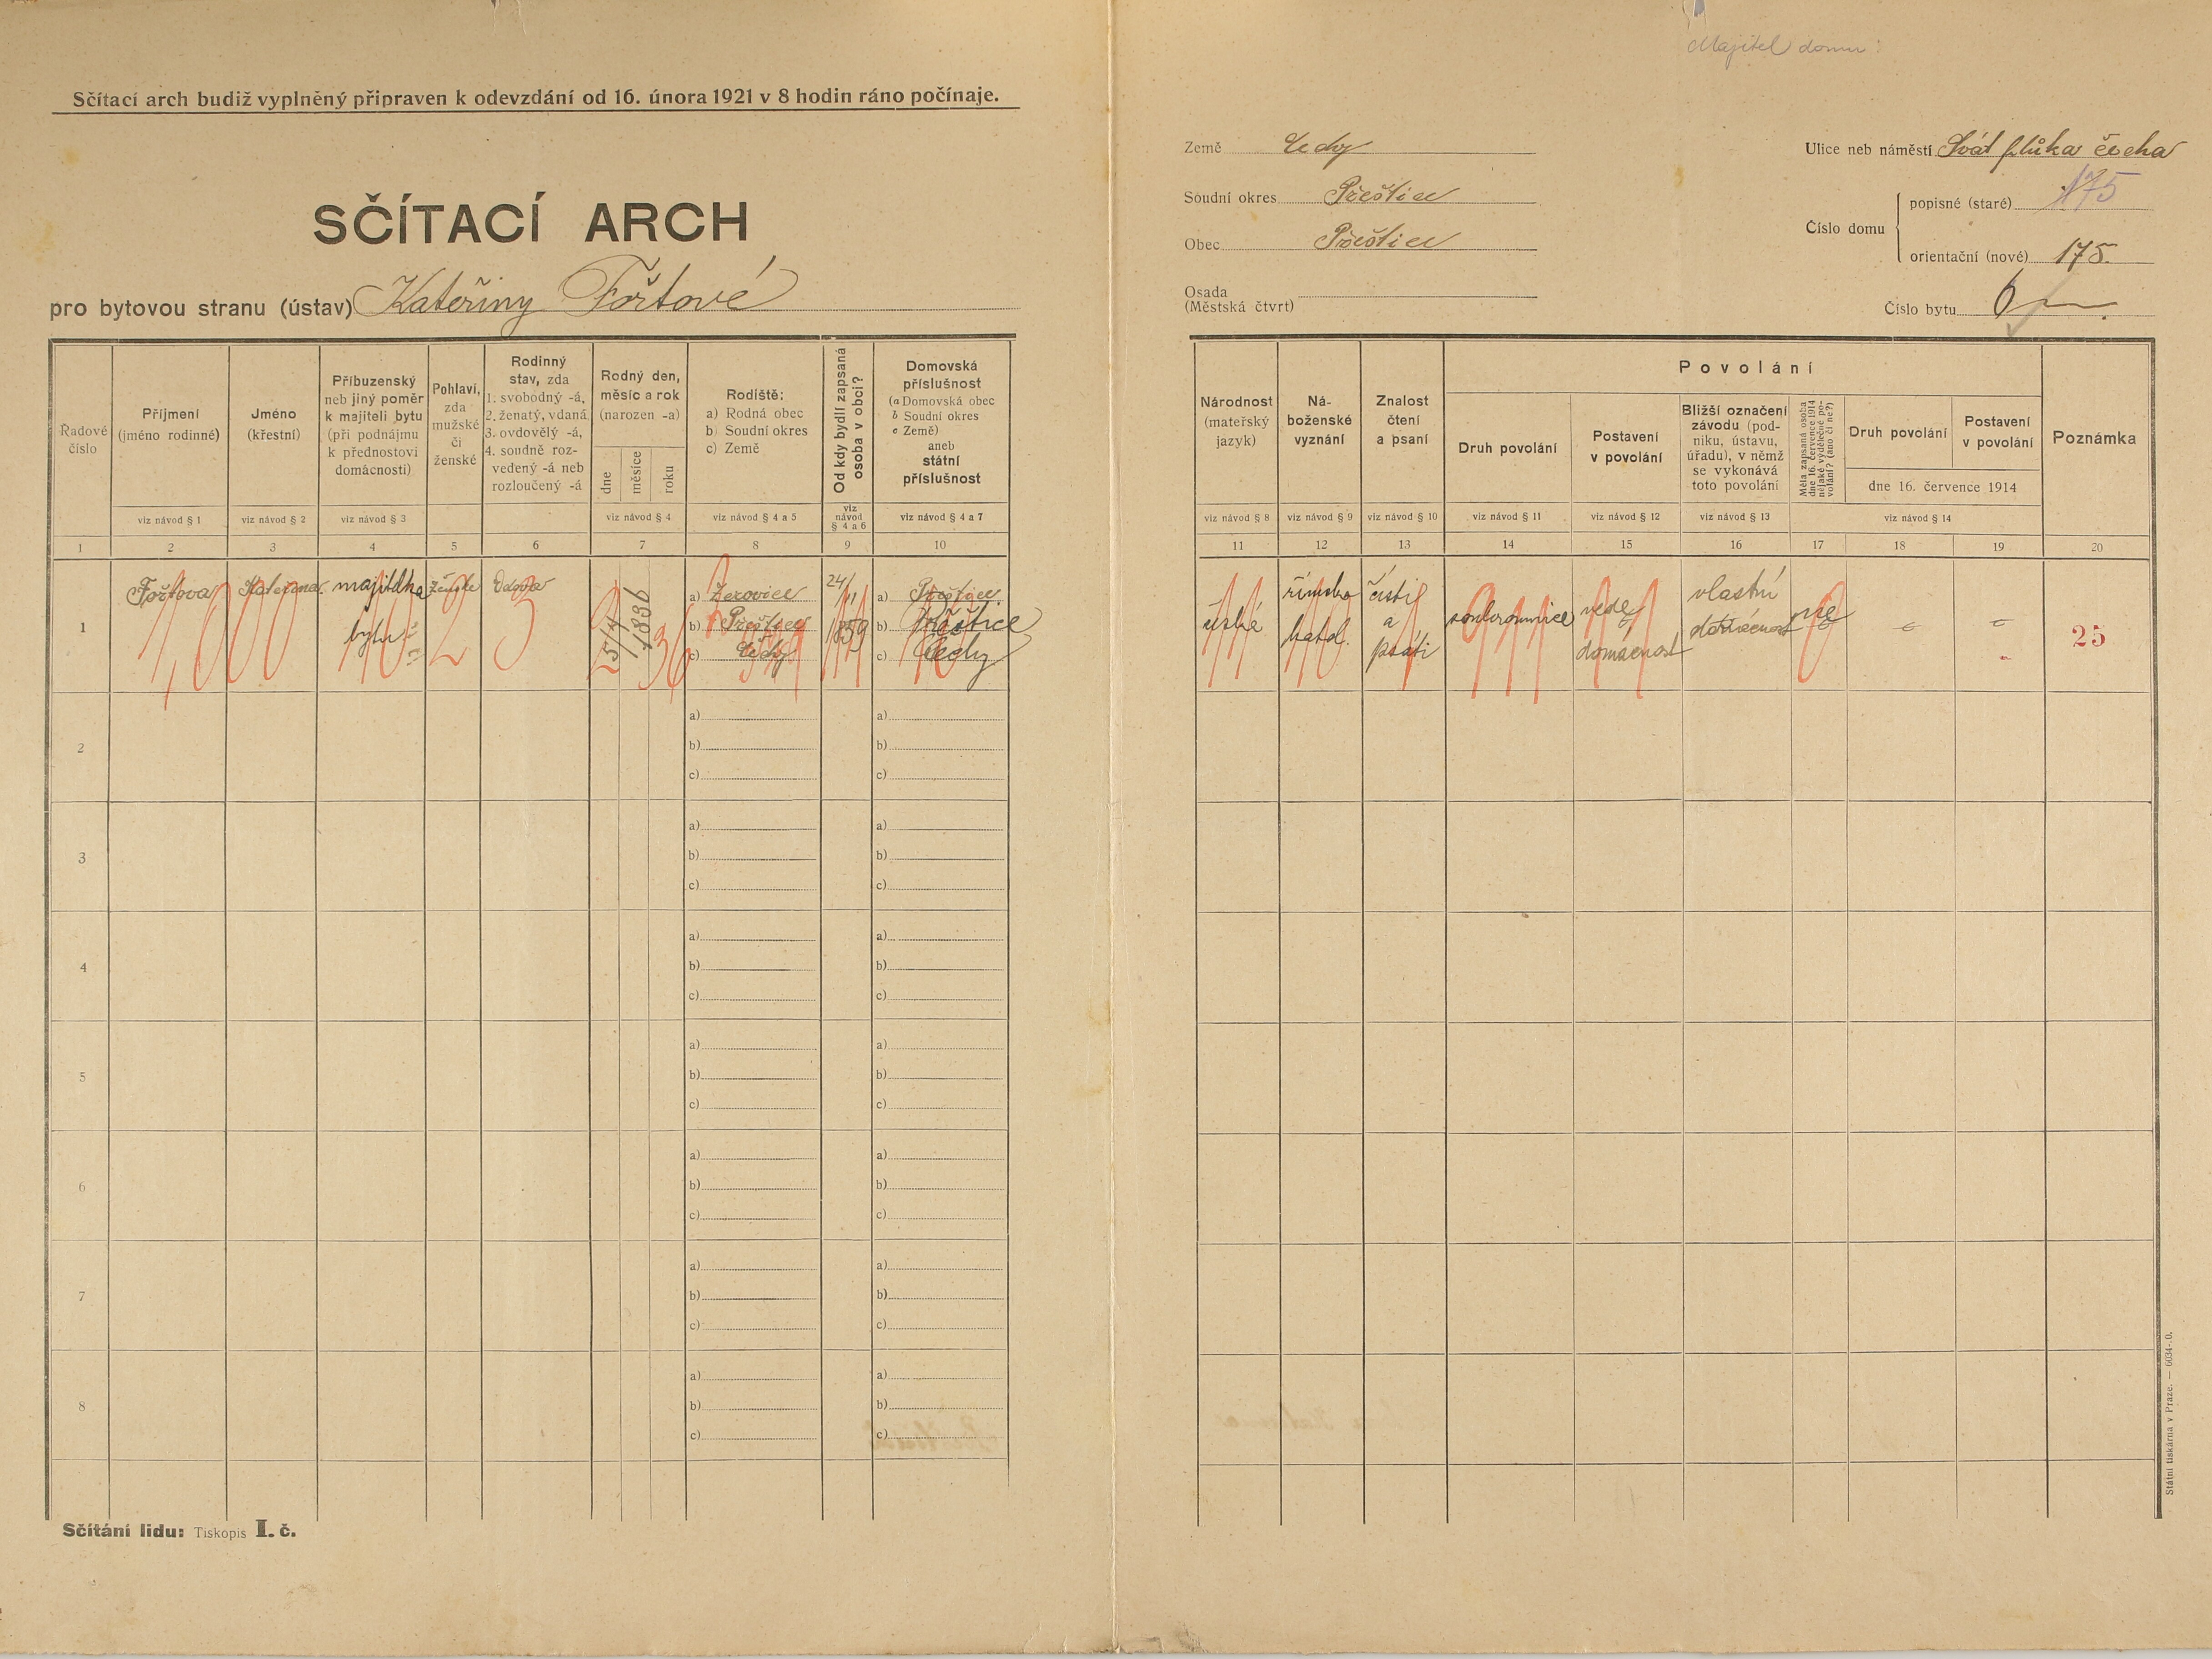 Majitel domu:
Sčítací arch budiž vyplněný připraven k odevzdání od 16. února 1921 v 8 hodin ráno počínaje.
SČÍTACÍ ARCH
pro bytovou stranu (ústav) Kateřiny Fořtové
Země Čechy
Soudní okres Přeštice
Obec Přeštice
Osada
(Městská čtvrť)
Ulice neb náměstí Svat pluka čecha
Číslo domu
popisné (staré) 175
orientační (nové) 175.
Číslo bytu 6
Řadové
číslo
Příjmení
(jméno rodinné)
viz návod § 1
Jméno
(křestní)
viz návod § 2
Příbuzenský
neb jiný poměr
k majiteli bytu
(při podnájmu
k přednostovi
domácnosti)
viz návod § 3
Pohlaví,
zda
mužské
či
ženské
Rodinný
stav, zda
1. svobodný -á,
2. ženatý, vdaná,
3. ovdovělý -á,
4. soudně roz-
vedený -á neb
rozloučený -á
Rodný den,
měsíc a rok
(narozen -a)
dne
měsíce
roku
viz návod § 4
Rodiště:
a) Rodná obec
b) Soudní okres
c) Země
viz návod § 4 a 5
Od kdy bydlí zapsaná
osoba v obci?
viz
návod
§ 4 a 6
Domovská
příslušnost
(a Domovská obec
b Soudní okres
c Země)
aneb
státní
příslušnost
viz návod § 4 a 7
Národnost
(mateřský
jazyk)
viz návod § 8
Ná-
boženské
vyznání
viz návod § 9
Znalost
čtení
a psaní
viz návod § 10
Povolání
Druh povolání
viz návod § 11
Postavení
v povolání
viz návod § 12
Bližší označení
závodu (pod-
niku, ústavu,
úřadu), v němž
se vykonává
toto povolání
viz návod § 13
Měla zapsaná osoba
dne 16. července 1914
nějaké výdělečné po-
volání? (ano či ne?)
Druh povolání
Postavení
v povolání
dne 16. července 1914
viz návod § 14
Poznámka
1 2 3 4 5 6 7 8 9 10 11 12 13 14 15 16 17 18 19 20
1
Fořtova
Kateřina
majitelka
bytu
ženské
vdova
5/4 1836
a) Žerovice
b) Přeštice
c) Čechy
24/11
1859
a) Přeštice
b) Přeštice
c) Čechy
římsko
katol.
čísti
a
psáti
soukromnice
vede
domácnost
vlastní
domácnost
ne
25
2
a)
b)
c)
a)
b)
c)
3
a)
b)
c)
a)
b)
c)
4
a)
b)
c)
a)
b)
c)
5
a)
b)
c)
a)
b)
c)
6
a)
b)
c)
a)
b)
c)
7
a)
b)
c)
a)
b)
c)
8
a)
b)
c)
a)
b)
c)
Sčítání lidu: Tiskopis I. č.
Státní tiskárna v Praze. — 6034-.0.